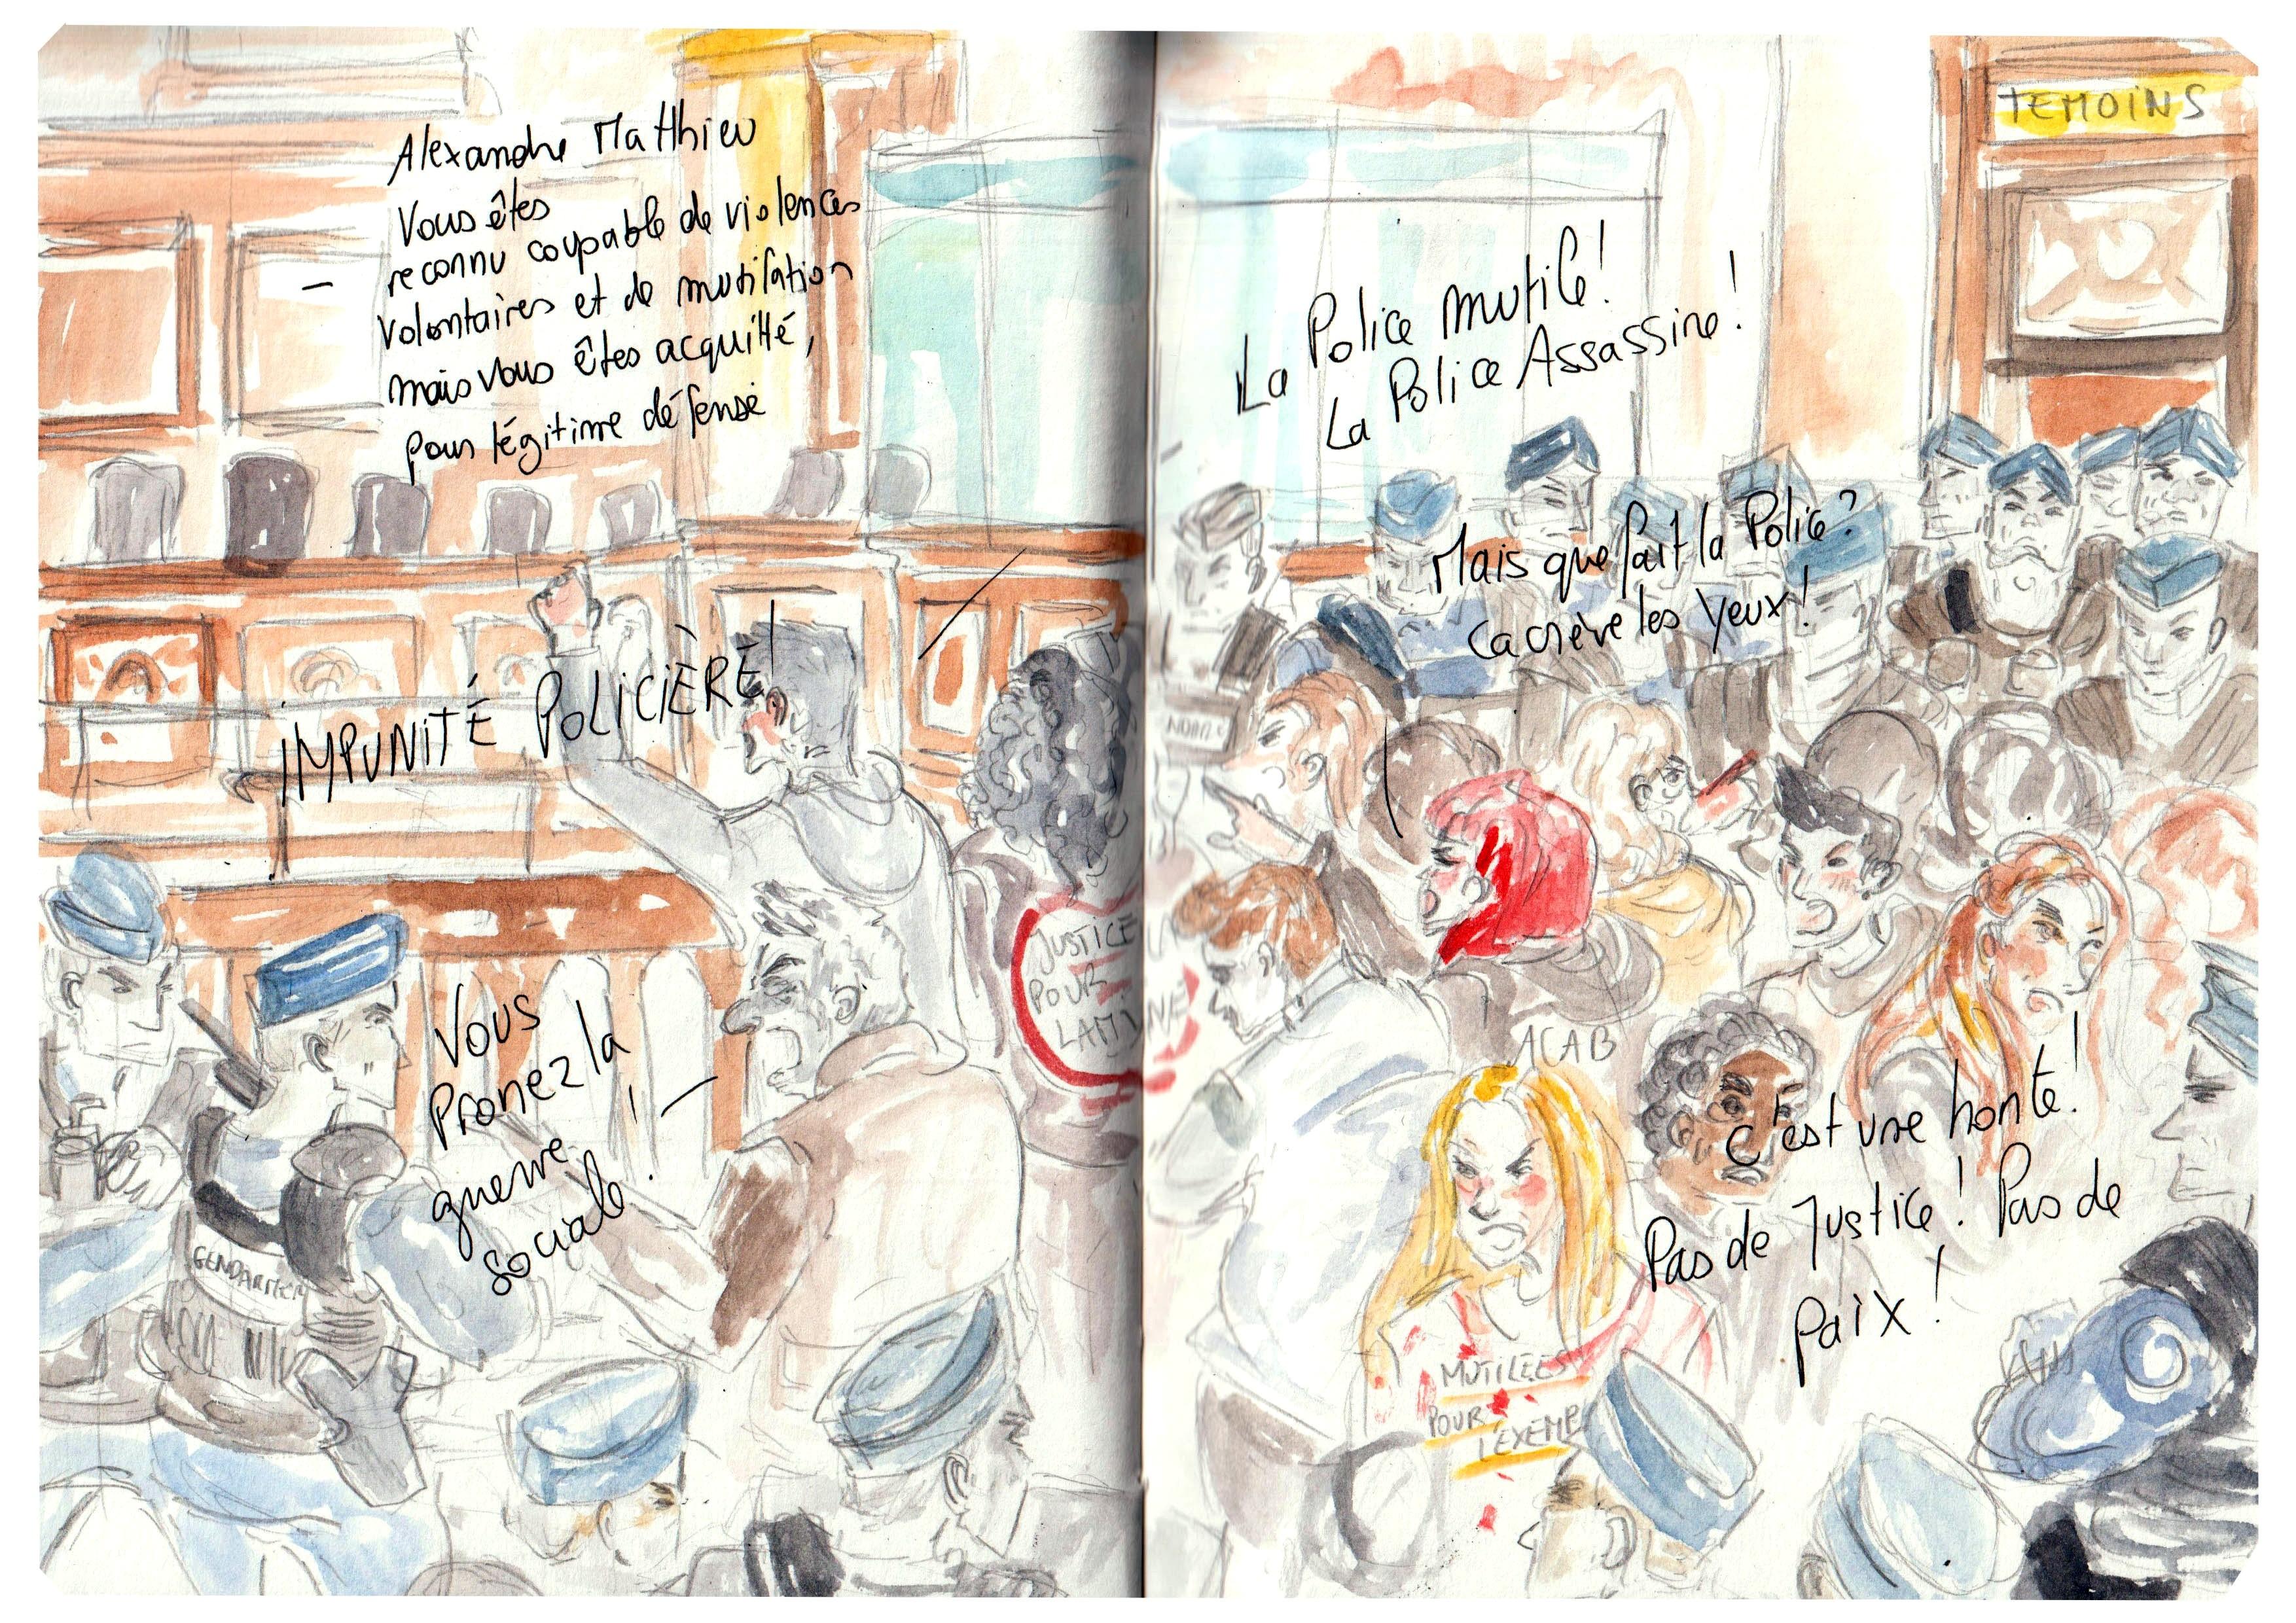 Alexandre Matthieu
Vous êtes
reconnu coupable de violences
volontaires et de mutilation
mais vous êtes acquitté,
pour légitime défense
IMPUNITÉ POLICIÈRE !
Vous
Pronez la
guerre
sociale !
GENDARMERI
JUSTICE
POUR
LAMINE
TEMOINS
La Police mutile !
La Police Assassine !
Mais que fait la Police ?
ca crève les yeux !
ACAB
c'est une honte !
Pas de Justice ! Pas de
paix !
MUTILÉES
POUR
L'EXEMP